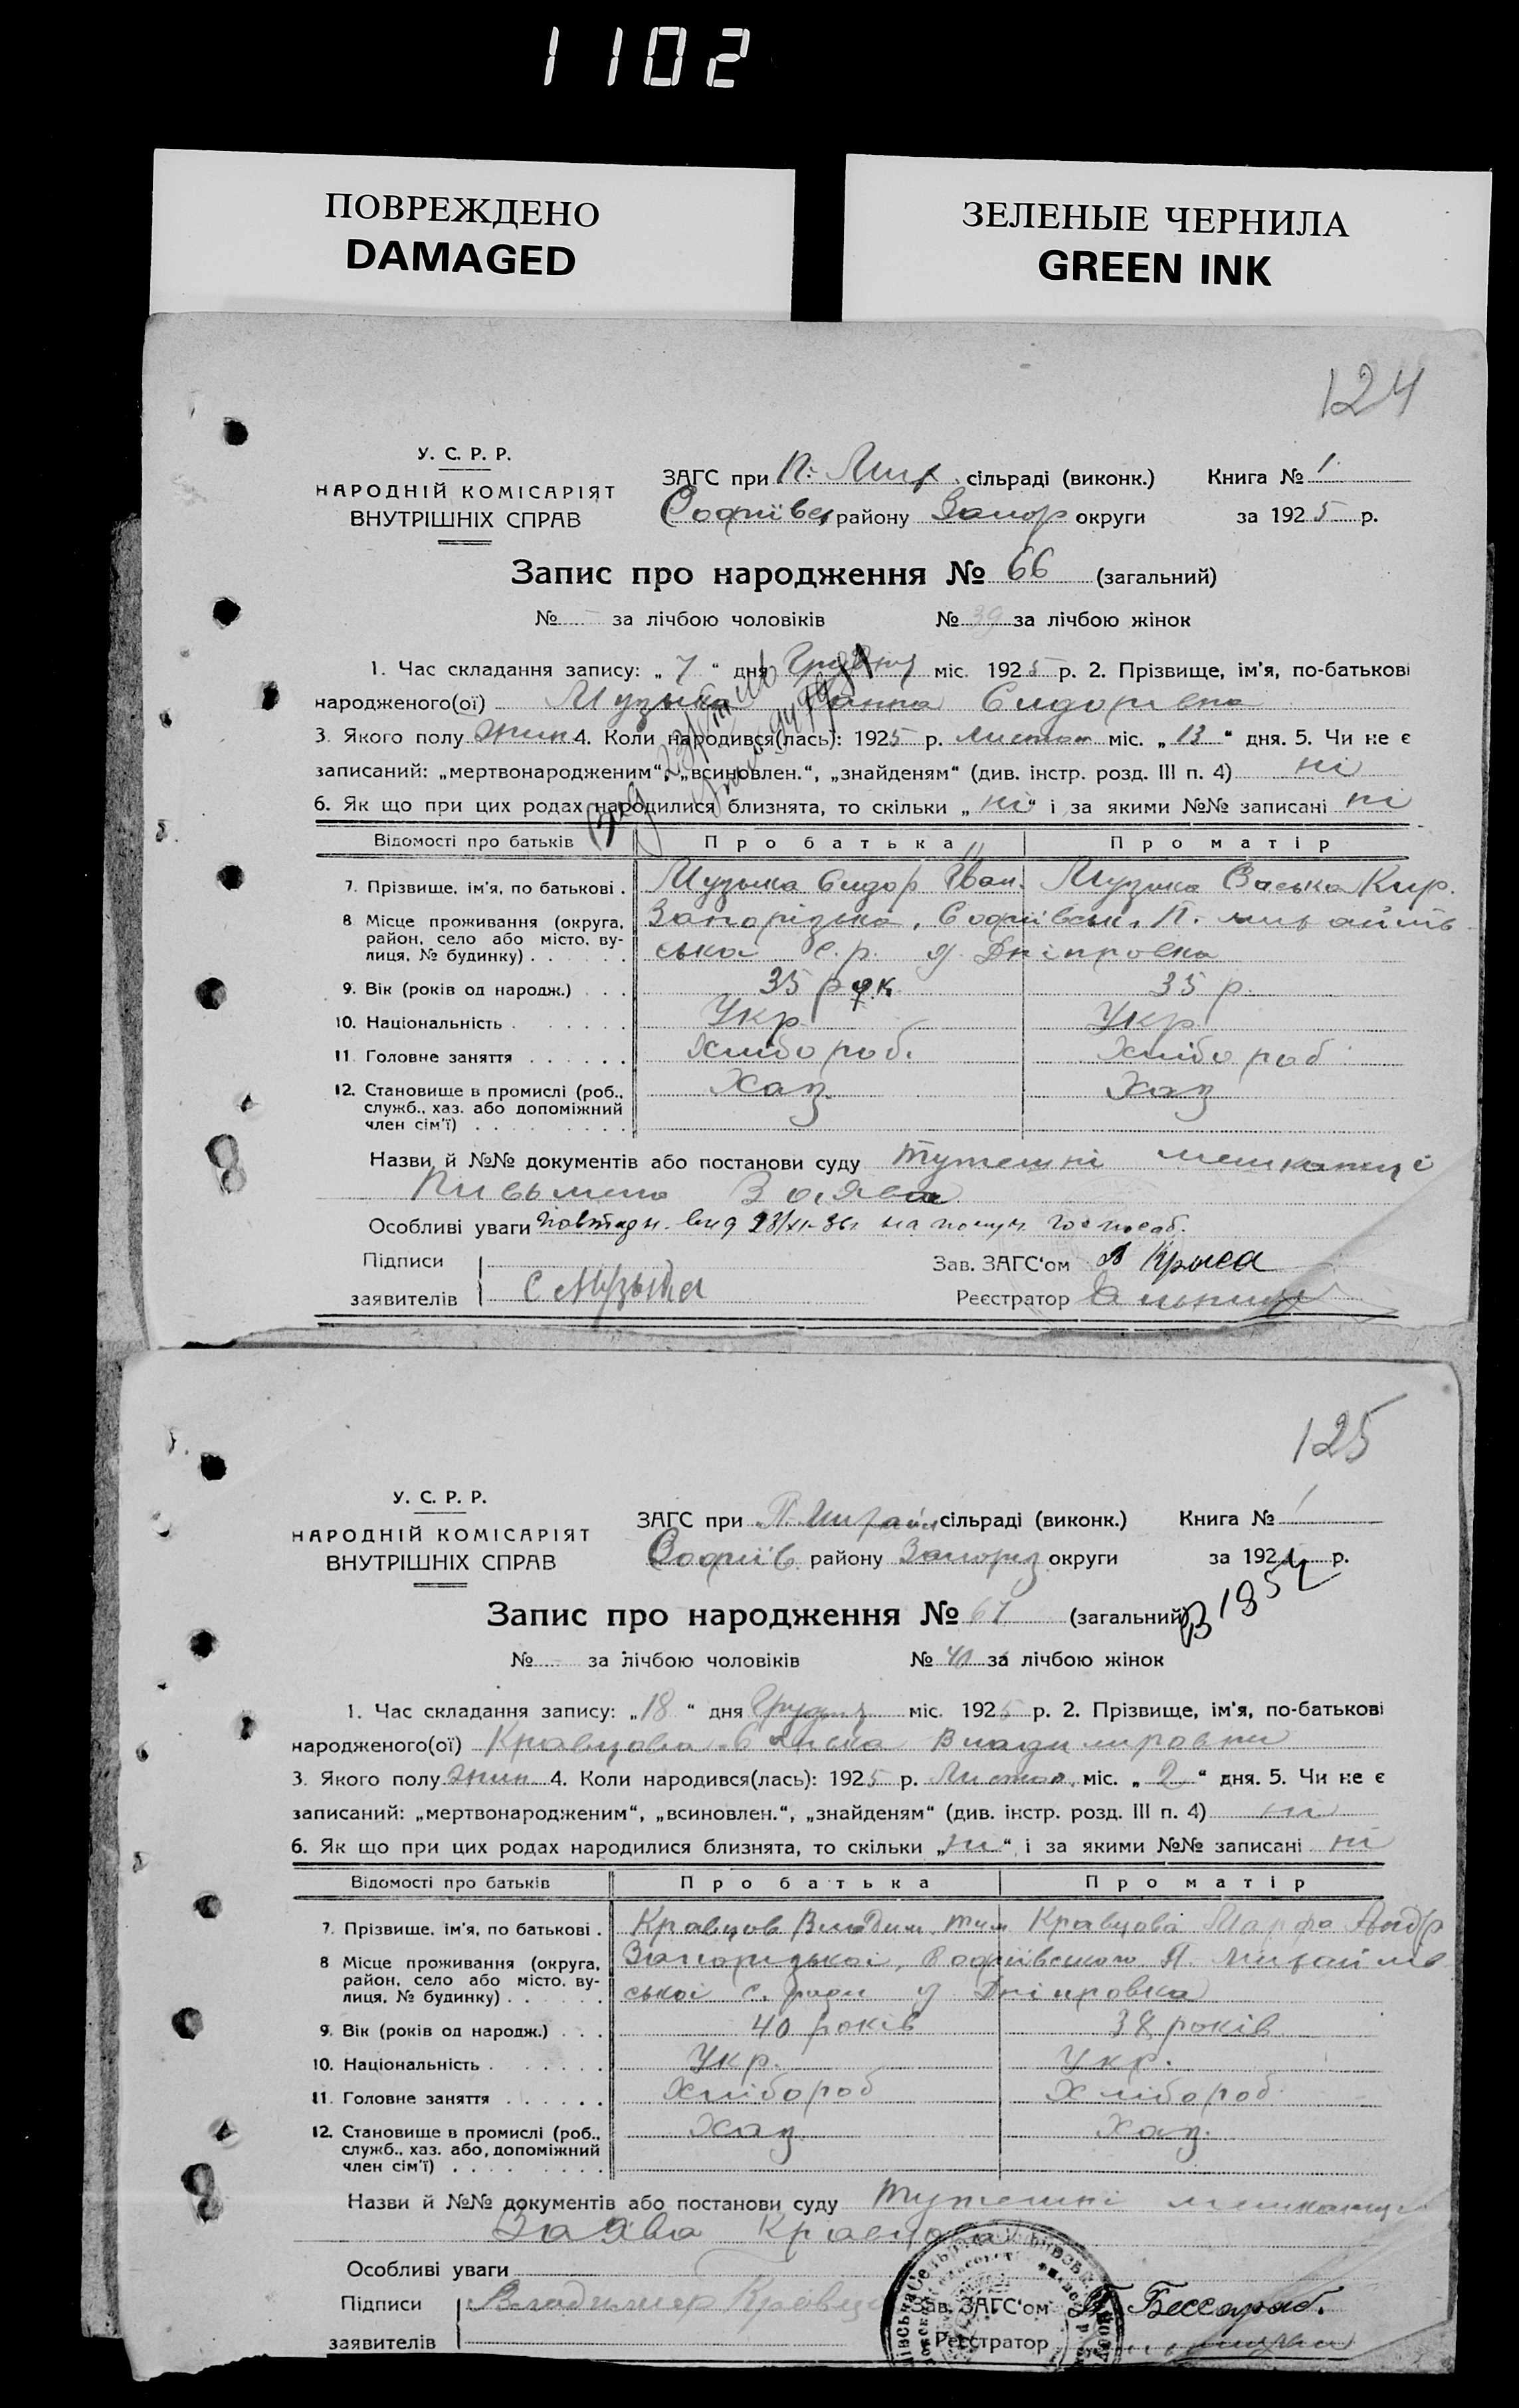 1102
ПОВРЕЖДЕНО
DAMAGED
ЗЕЛЕНЫЕ ЧЕРНИЛА
GREEN INK
124
У. С. Р. Р.
НАРОДНІЙ КОМІСАРІЯТ
ВНУТРІШНІХ СПРАВ
ЗАГС при П. Мих. сільраді (виконк.) Книга № 1
Софіївс району Запор округи за 1925 р.
Запис про народження № 66 (загальний)
№ - за лічбою чоловіків № 39 за лічбою жінок
1. Час складання запису: „ 7 “ дня Грудня міс. 1925 р. 2. Прізвище, ім'я, по-батькові
народженого(ої) Музыка Ганна Сидоривна
3. Якого полу Жин 4. Коли народився(лась): 1925 р. Листоп міс. „ 13 “ дня. 5. Чи не є
записаний: „мертвонародженим“, „всиновлен.“, „знайденям“ (див. інстр. розд. III п. 4) ні
6. Як що при цих родах народилися близнята, то скільки „ ні “ і за якими №№ записані ні
Відомості про батьків Про батька Про матір
7. Прізвище, ім'я, по батькові . Музыка Сидор Іван. Музика Васька Кир.
8 Місце проживання (округа, район, село або місто, вулиця, № будинку) . Запорізька, Софіївськ, П. михайлів
ська с.р. д Дніпровка
9. Вік (років од народж.) . . . 35 рок 35 р.
10. Національність . Укр. Укр.
11. Головне заняття . Хлібороб. Хлібороб
12. Становище в промислі (роб., служб., хаз. або допоміжний член сім'ї) . Хаз. Хаз
Назви й №№ документів або постанови суду Тутешні мешканці
Письмена Заява
Особливі уваги повторн. вид 23/XI-36г на получ. гос пособ.
Підписи
заявителів С Музыка
Зав. ЗАГС'ом
Реєстратор
125
У. С. Р. Р.
НАРОДНІЙ КОМІСАРІЯТ
ВНУТРІШНІХ СПРАВ
ЗАГС при П. Михайл сільраді (виконк.) Книга № 1
Софіїв. району Запоріз округи за 192 р.
Запис про народження № 67 (загальний)
№ - за лічбою чоловіків № 40 за лічбою жінок
1. Час складання запису: „ 18 “ дня Грудня міс. 1925 р. 2. Прізвище, ім'я, по-батькові
народженого(ої) Кравцова Владимировни
3. Якого полу Жин 4. Коли народився(лась): 1925 р. Листоп. міс. „ 2 “ дня. 5. Чи не є
записаний: „мертвонародженим“, „всиновлен.“, „знайденям“ (див. інстр. розд. III п. 4) ні
6. Як що при цих родах народилися близнята, то скільки „ ні “ і за якими №№ записані ні
Відомості про батьків Про батька Про матір
7. Прізвище, ім'я, по батькові . Кравцов Владим. Тим Кравцова Марфа Андр
8 Місце проживання (округа, район, село або місто, вулиця, № будинку) . Запоризької, Софіївського П. михайлів
ської с. ради д Дніпровка
9. Вік (років од народж.) . . . 40 років 38 років
10. Національність . Укр. Укр.
11. Головне заняття . Хлібороб Хлібороб
12. Становище в промислі (роб., служб., хаз. або допоміжний член сім'ї) . Хаз. Хаз.
Назви й №№ документів або постанови суду Тутешні мешканці
Заява Кравцова
Особливі уваги
Підписи Владимир Кравцо
заявителів
Зав. ЗАГС'ом Бессараб.
Реєстратор